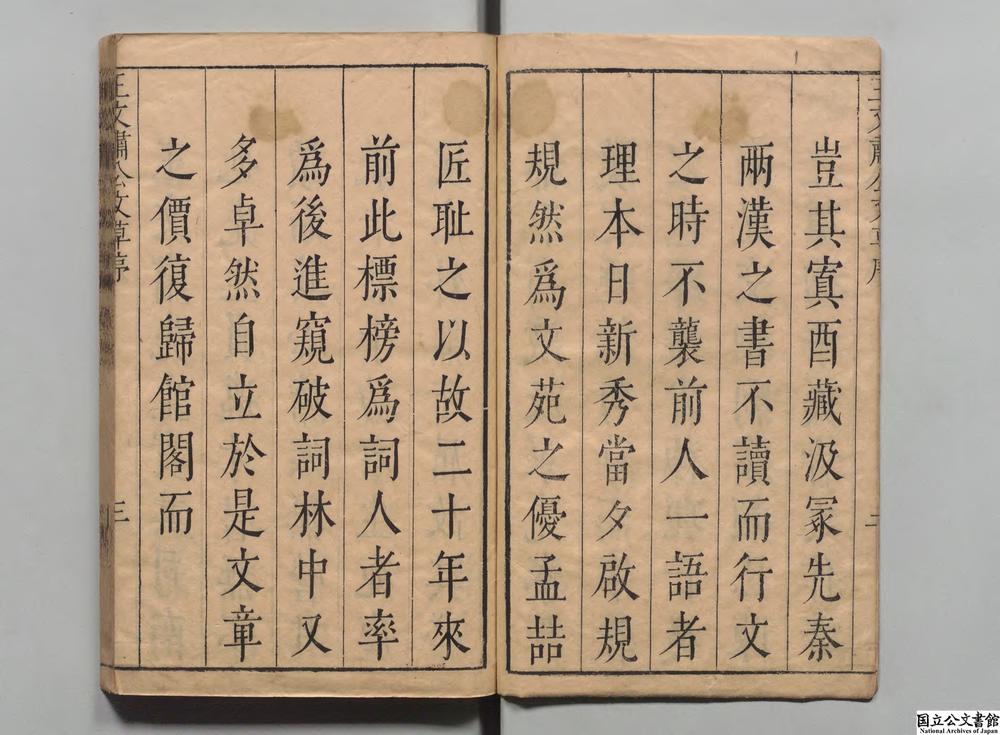 豈其寘酉藏汲冡先秦
兩漢之書不讀而行文
之時不襲前人一語者
理本日新秀當夕啟規
規然爲文苑之優孟喆
匠耻之以故二十年來
前此標榜爲詞人者率
爲後進窺破詞林中又
多卓然自立於是文章
之價復歸館閣而
王文肅公文草序
三
国立公文書館
National Archives of Japan